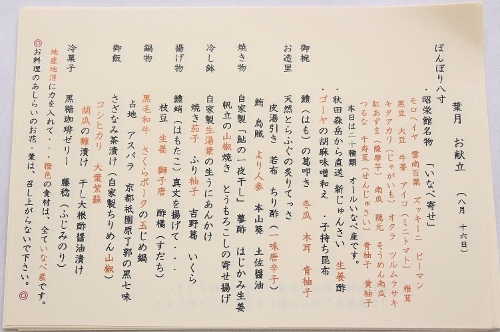 葉月　お献立　（八月　十六日）
ぼんぼり八寸
・昭栄館名物　「いなべ寄せ」
モロヘイヤ　雲南百菜　ズッキーニ　ピーマン
黒豆　大豆　牛蒡　アイコ（ミニトマト）　椎茸
キタアカリ（じゃがいも）　オクラ　ツルムラサキ
紅あずま（薩摩芋）　南瓜　隠元　そうめん南瓜
つるな　千寿菜（せんじゅさい）　青柚子　黄柚子
本日は二十種類　オールいなべ産です。
・秋田森岳から直送　新じゅんさい　生姜酢
・ゴーヤの胡麻味噌和え　・子持ち昆布
御椀　鱧（はも）の葛叩き　冬瓜　木耳　青柚子
お造里　天然とらふぐの炙りてっさ
皮湯引き　若布　ちり酢（一味唐辛子）
鮪　烏賊　より人参　本山葵　土佐醤油
焼き物　自家製「鮎の一夜干し」　蓼酢　はじかみ生姜
帆立の山椒焼き　とうもろこしの寄せ揚げ
冷し鉢　自家製生湯葉の生うにあんかけ
焼き茄子　ふり柚子　吉野葛　いくら
揚げ物　鱧蛸（はもたこ）真丈を揚げて・・・
枝豆　生姜　獅子唐　酢橘（すだち）
鍋物　黒毛和牛　さくらポークの玉じめ鍋
占地　アスパラ　京都祇園原了郭の黒七味
御飯　さざなみ茶漬け（自家製ちりめん山椒）
コシヒカリ　大葉紫蘇
胡瓜の糠漬け　干し大根酢醤油漬け
冷菓子　黒糖珈琲ゼリー　藤稔（ふじみのり）
地産地消に力を入れて・・・橙色の食材は、全ていなべ産です。
◎お料理のあしらいのお花・葉は、召し上がらないで下さい。◎